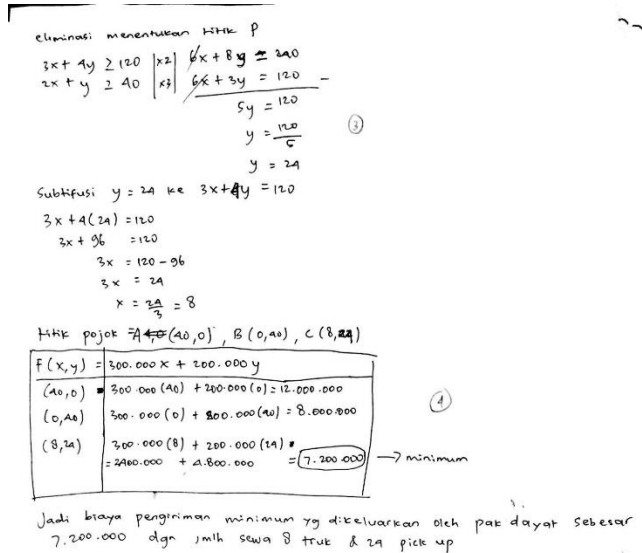 eliminasi menentukan titik P
3x + 4y ≥ 120 |x2| 6x + 8y = 240
2x + y ≥ 40 |x3| 6x + 3y = 120 −
5y = 120
y = 120/5
③
y = 24
Subtifusi y = 24 ke 3x + 4y = 120
3x + 4(24) = 120
3x + 96 = 120
3x = 120 - 96
3x = 24
x = 24/3 = 8
titik pojok = A (40,0), B (0,40), C (8,24)
f(x,y) = 300.000 x + 200.000 y
(40,0) 300.000 (40) + 200.000 (0) = 12.000.000
(0,40) 300.000 (0) + 200.000 (40) = 8.000.000
④
(8,24) 300.000 (8) + 200.000 (24)
= 2400.000 + 4.800.000 = 7.200.000 → minimum
Jadi biaya pengiriman minimum yg dikeluarkan oleh pak dayat sebesar
7.200.000 dgn jmlh sewa 8 truk & 24 pick up